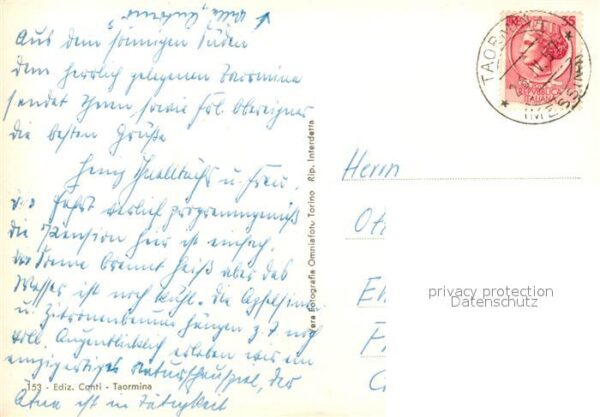 Villa "Antonio"
Aus dem sonnigen Süden
dem herrlich gelegenen Taormina
sendet Ihnen sowie Frl. Obereigner
die besten Grüße
Henry u. Frau.
Die Fahrt verlief programmgemäß
die Pension hier ist einfach,
die Sonne brennt heiß aber das
Wasser ist noch kühl. Die Apfelsinen
u. Zitronenbäume hängen z. T. noch
voll. Augenblicklich erleben wir ein
einzigartiges Naturschauspiel, der
Ätna ist in Tätigkeit
153 - Ediz. Conti - Taormina
Vera Fotografia Omniafoto Torino Rip. Interdetta
TAORMINA
MESSINA
35
REPUBBLICA
ITALIANA
Herrn
privacy protection
Datenschutz